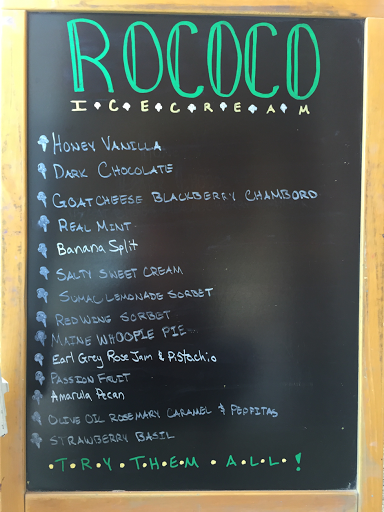 ROCOCO
I·C·E·C·R·E·A·M
HONEY VANILLA
DARK CHOCOLATE
GOATCHEESE BLACKBERRY CHAMBORD
REAL MINT
Banana Split
SALTY SWEET CREAM
SUMAC LEMONADE SORBET
REDWING SORBET
MAINE WHOOPIE PIE
Earl Grey Rose Jam & Pistachio
PASSION FRUIT
Amarula Pecan
OLIVE OIL ROSEMARY CARAMEL & PEPPITAS
STRAWBERRY BASIL
·T·R·Y·T·H·E·M·A·L·L·!